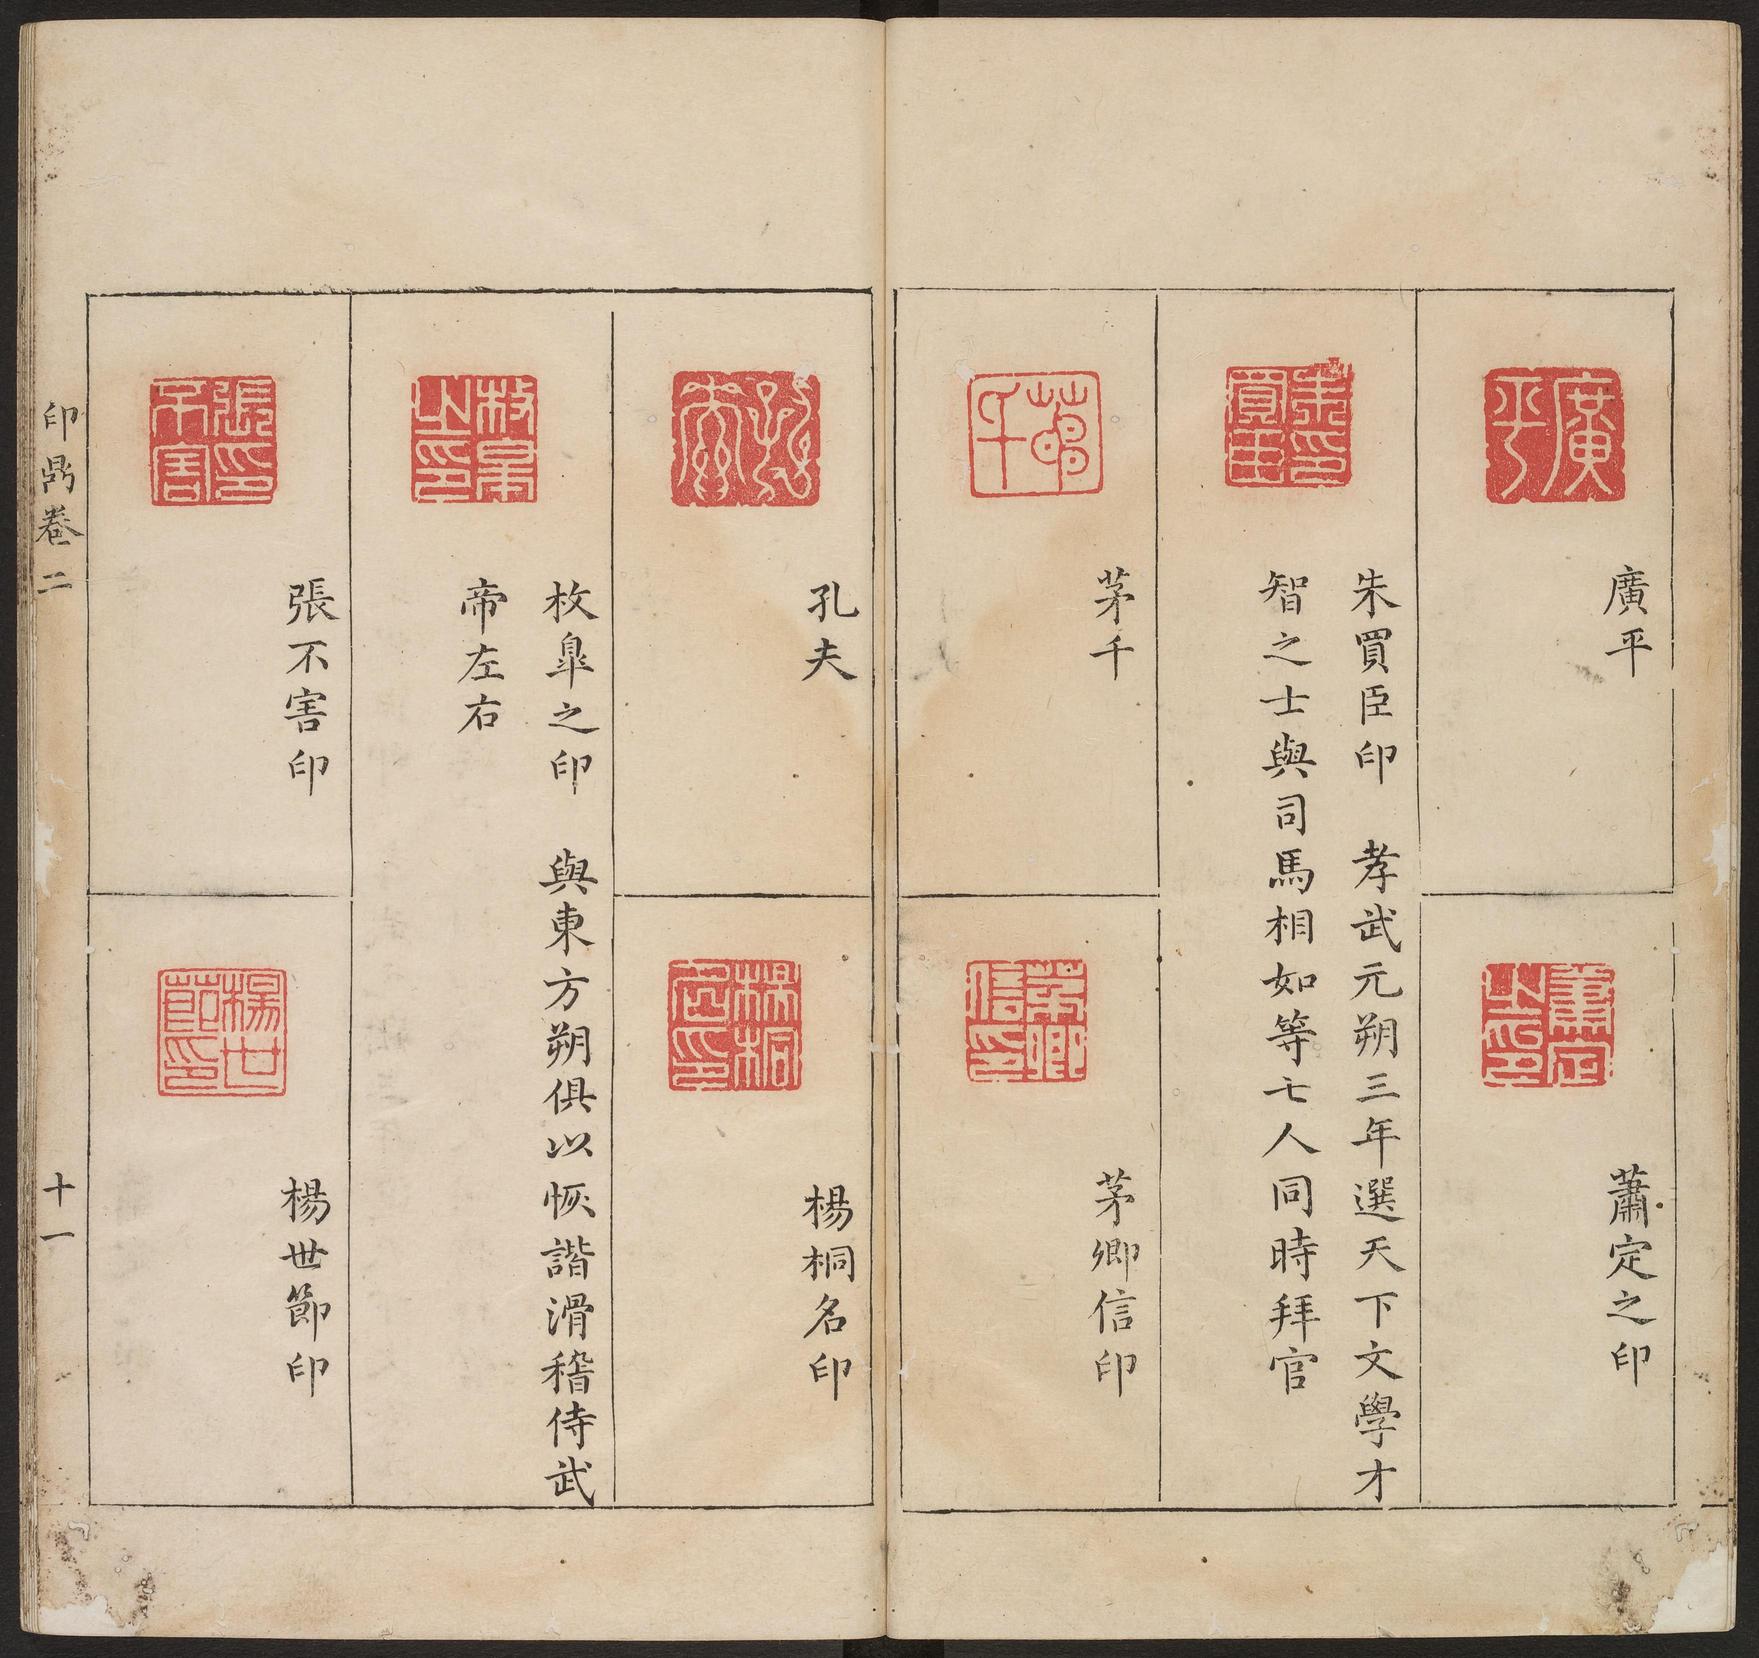 廣平
蕭定之印
朱買臣印　孝武元朔三年選天下文學才
智之士與司馬相如等七人同時拜官
茅千
茅卿信印
孔夫
楊桐名印
枚臯之印　與東方朔俱以恢諧滑稽侍武
帝左右
張不害印
楊世節印
印鼎卷二
十一